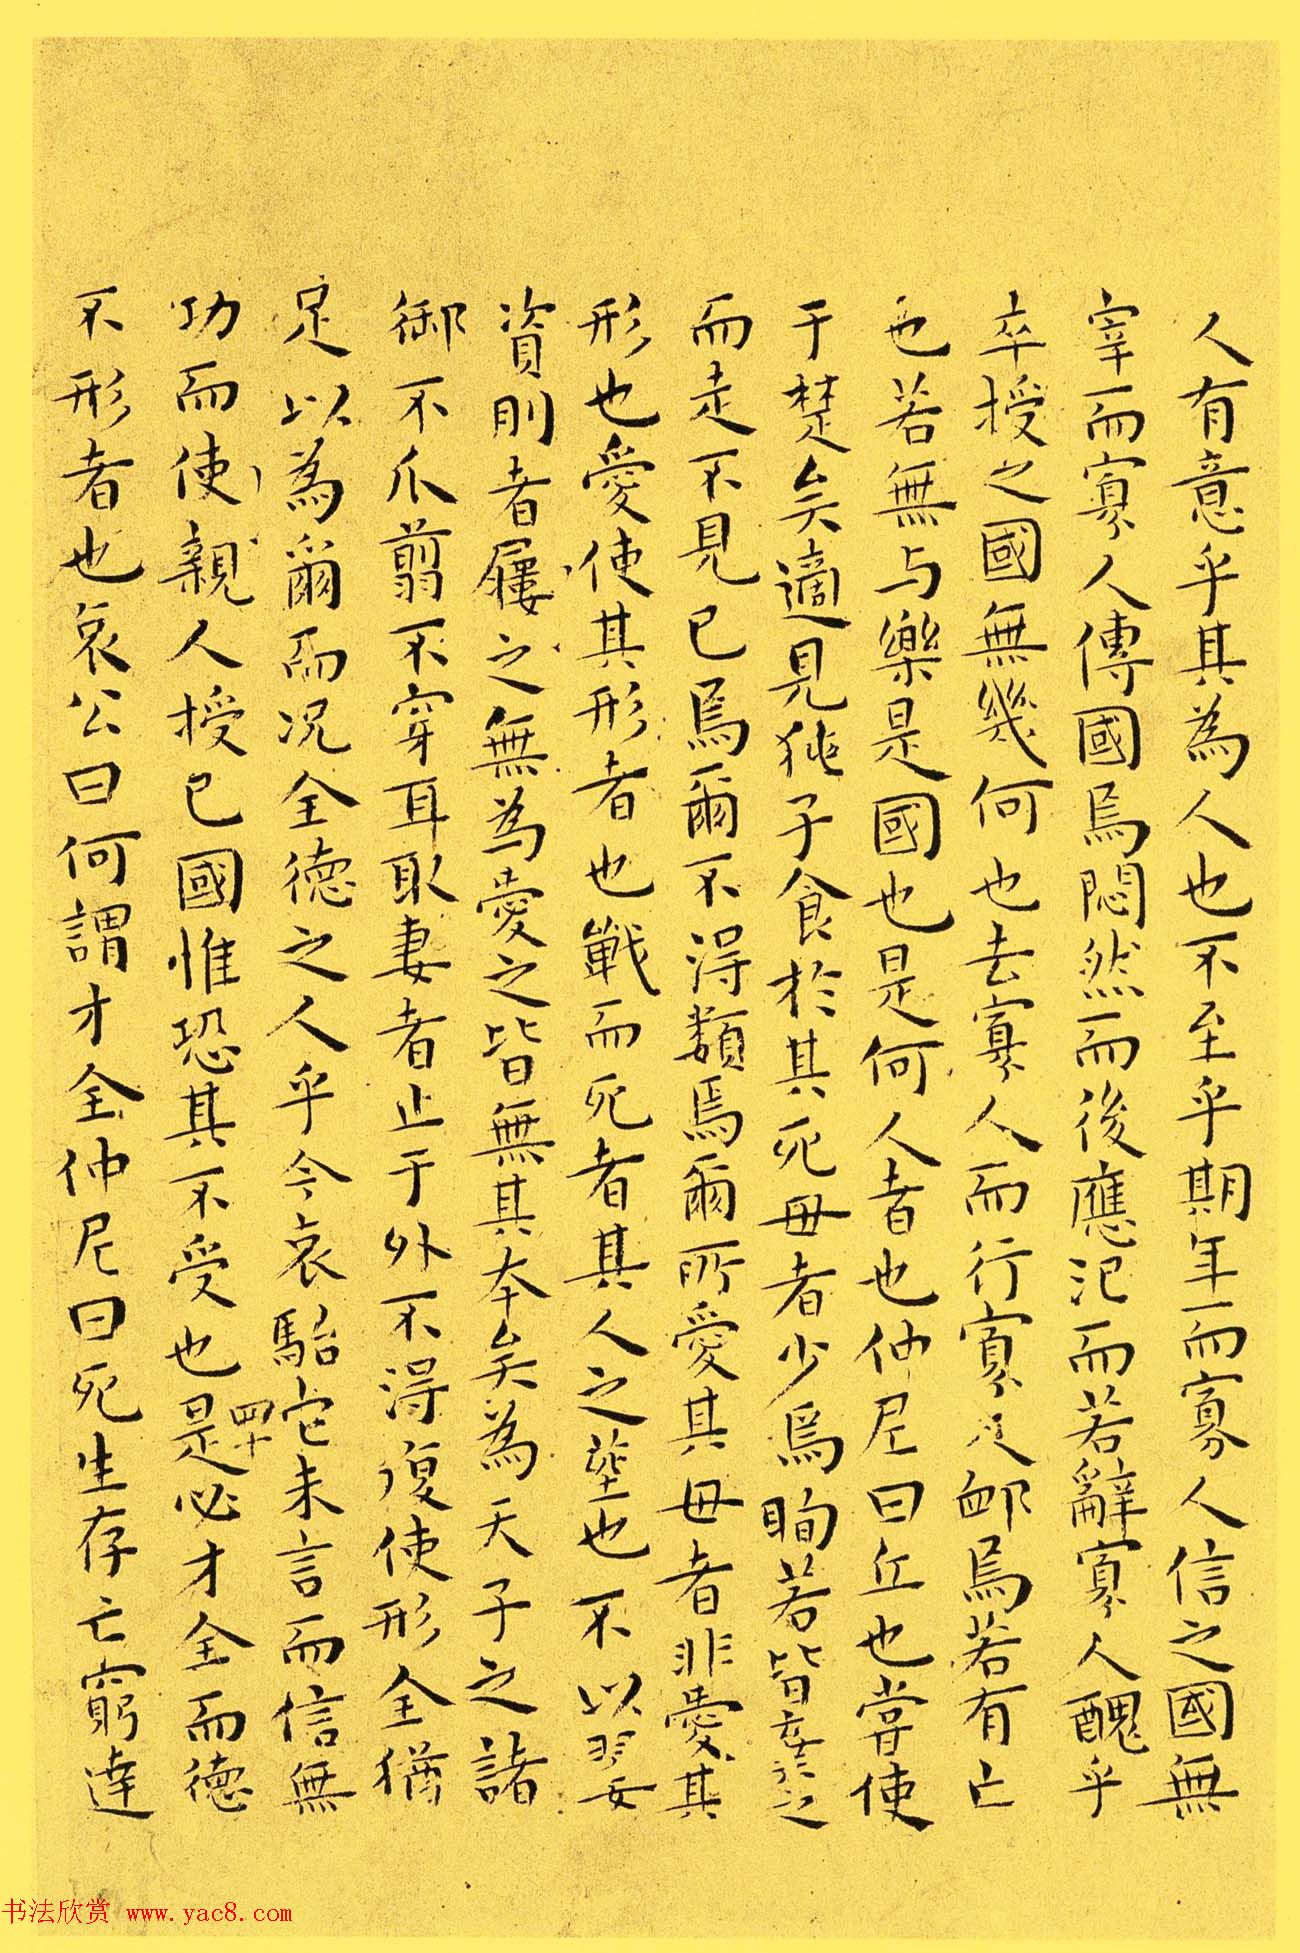 人有意乎其為人也不至乎期年而寡人信之國無
宰而寡人傳國焉悶然而後應氾而若辭寡人醜乎
卒授之國無幾何也去寡人而行寡人卹焉若有亡
也若無与樂是國也是何人者也仲尼曰丘也嘗使
于楚矣適見㹠子食於其死母者少焉眴若皆棄之
而走不見己焉爾不得類焉爾所愛其母者非愛其
形也愛使其形者也戰而死者其人之塟也不以翣
資刖者屨之無為愛之皆無其本矣為天子之諸
御不爪翦不穿耳取妻者止于外不得復使形全猶
足以為爾而况全德之人乎今哀駘它未言而信無
四十
功而使親人授己國惟恐其不受也是必才全而德
不形者也哀公曰何謂才全仲尼曰死生存亡窮達
书法欣赏 www.yac8.com